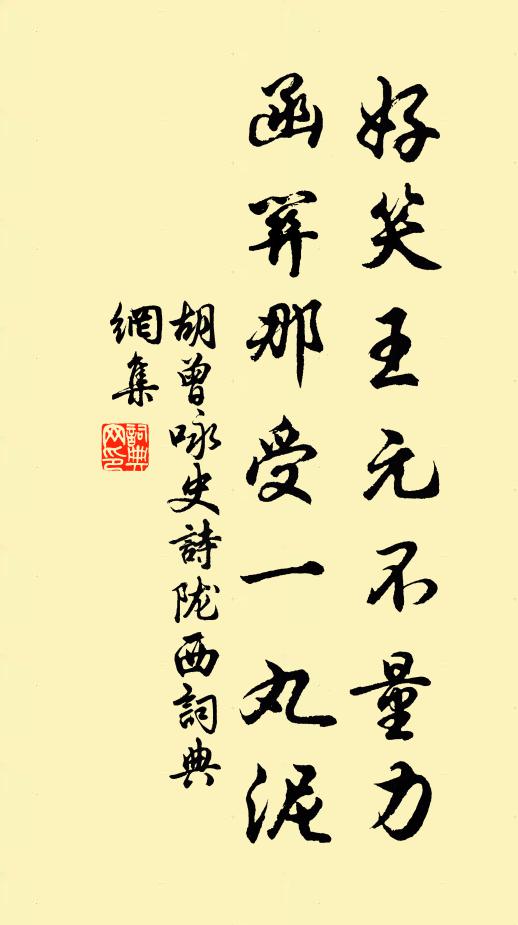 好笑王元不量力
函關那受一丸泥
胡曾咏史詩陇西詞典
網集
詞典
网印